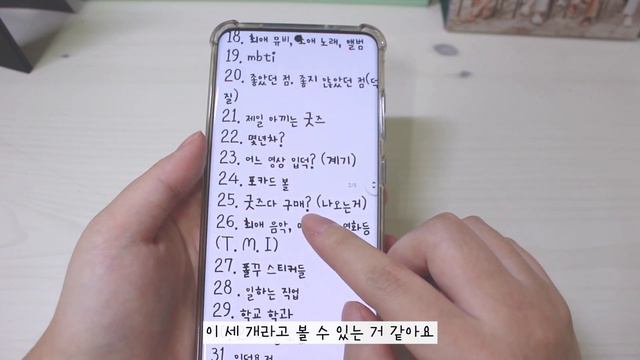 18. 최애 뮤비, 최애 노래, 앨범
19. mbti
20. 좋았던 점. 좋지 않았던 점(덕
질)
21. 제일 아끼는 굿즈
22. 몇년차?
23. 어느 영상 입덕? (계기)
24. 포카드 볼
2/3
25. 굿즈다 구매? (나오는거)
26. 최애 음악, 영화등
(T. M. I)
27. 폴꾸 스티커들
28. 일하는 직업
29. 학교 학과
이 세 개라고 볼 수 있는 거 같아요
31